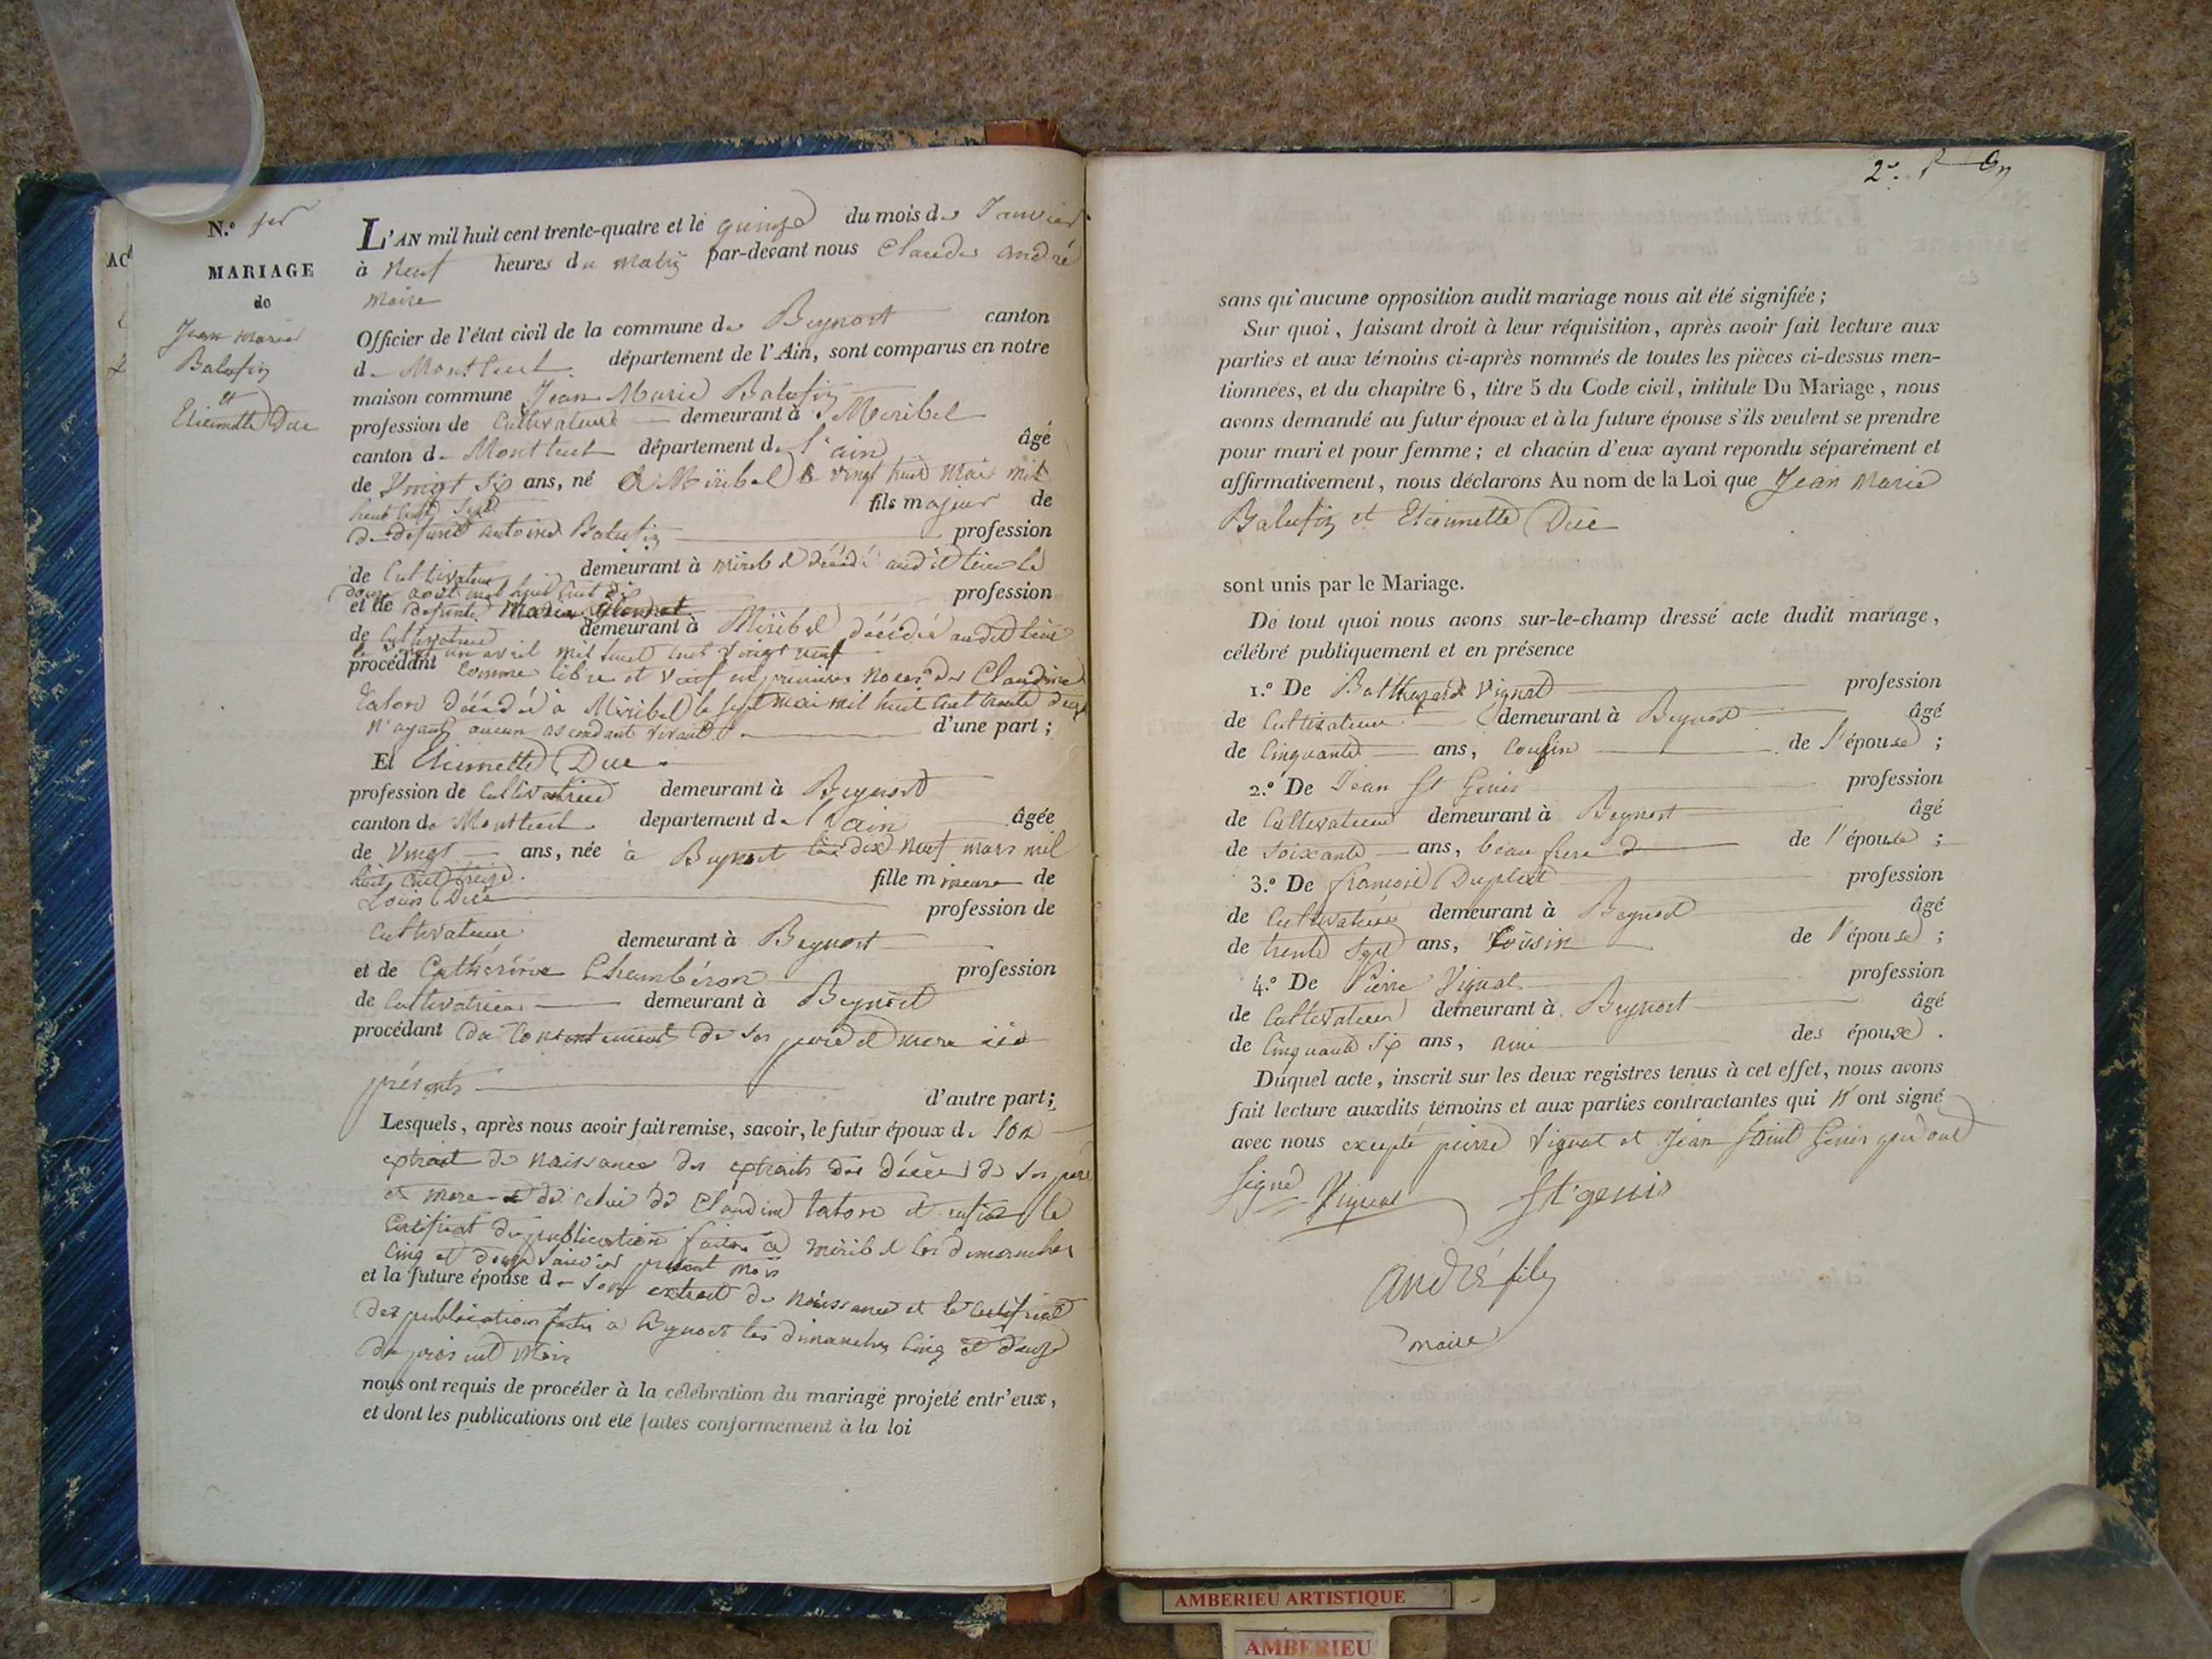 N.º 1er
MARIAGE
de
Jean Marie
Balufin
et
Etiennette Duc
L'AN mil huit cent trente-quatre et le quinze du mois de Janvier
à neuf heures du matin par-devant nous Claude andré
maire
Officier de l'état civil de la commune de Beynost canton
de Montluel département de l'Ain, sont comparus en notre
maison commune Jean Marie Balufin
profession de Cultivateur demeurant à Miribel
canton de Montluel département de l'ain âgé
de Vingt Six ans, né à Miribel le vingt huit mai mil
huit cent sept fils majeur de
de defunt antoine Balufin profession
de Cultivateur demeurant à miribel décédé audit lieu le
douze aout mil huit cent dix
et de defunte Marie profession
de Cultivatrice demeurant à Miribel décédée audit lieu
le vingt un avril mil huit cent vingt neuf
procédant comme libre et veuf en premieres noces de Claudine
Tatore décédée à Miribel le sept mai mil huit cent trente deux
n'ayant aucun ascendant vivant d'une part ;
Et Etiennette Duc
profession de Cultivatrice demeurant à Beynost
canton de Montluel departement de l'ain âgée
de Vingt ans, née à Beynost le dix neuf mars mil
huit cent treize. fille mineure de
Louis Duc profession de
Cultivateur demeurant à Beynost
et de Catherine Chambéron profession
de Cultivatrice demeurant à Beynost
procédant du Consentement de ses pere et mere ici
présents d'autre part ;
Lesquels, après nous avoir fait remise, savoir, le futur époux de son
extrait de naissance des extraits des décès de ses pere
et mere et de celui de Claudine tatore et enfin le
Certificat de publication faites à miribel les dimanches
Cinq et douze Janvier présent mois
et la future épouse de son extrait de naissance et le certificat
des publications faites à Beynost les dimanches Cinq et douze
du présent mois
nous ont requis de procéder à la célébration du mariage projeté entr'eux,
et dont les publications ont été faites conformement à la loi
2e.
sans qu'aucune opposition audit mariage nous ait été signifiée ;
Sur quoi, faisant droit à leur réquisition, après avoir fait lecture aux
parties et aux témoins ci-après nommés de toutes les pièces ci-dessus men-
tionnées, et du chapitre 6, titre 5 du Code civil, intitule Du Mariage, nous
avons demandé au futur époux et à la future épouse s'ils veulent se prendre
pour mari et pour femme ; et chacun d'eux ayant repondu séparément et
affirmativement, nous déclarons Au nom de la Loi que Jean Marie
Balufin et Etiennette Duc
sont unis par le Mariage.
De tout quoi nous avons sur-le-champ dressé acte dudit mariage,
célébré publiquement et en présence
1.º De Balthazard Vignat profession
de Cultivateur demeurant à Beynost âgé
de Cinquante ans, Cousin de l'épouse ;
2.º De Jean St Genis profession
de Cultivateur demeurant à Beynost âgé
de soixante ans, beau frere de l'épouse ;
3.º De françois Duplat profession
de Cultivateur demeurant à Beynost âgé
de trente sept ans, Cousin de l'épouse ;
4.º De Pierre Vignat profession
de Cultivateur demeurant à Beynost âgé
de Cinquante Six ans, ami des époux .
Duquel acte, inscrit sur les deux registres tenus à cet effet, nous avons
fait lecture auxdits témoins et aux parties contractantes qui n'ont signé
avec nous excepté pierre Vignat et Jean Saint Genis qui ont
signé Vignat St genis
André fils
maire
AMBERIEU ARTISTIQUE
AMBERIEU